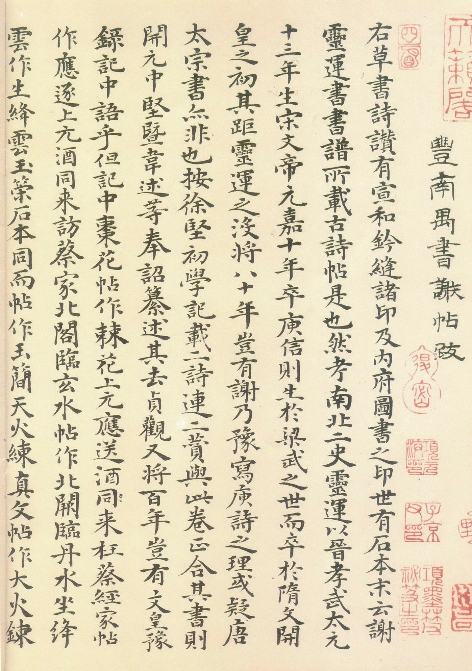 天籟閣
豐南禺書謝帖攷
項元汴印
子京父印
右草書詩讚有宣和鈐縫諸印及內府圖書之印世有石本末云謝
靈運書書譜所載古詩帖是也然考南北二史靈運以晉孝武太元
十三年生宋文帝元嘉十年卒庾信則生於梁武之世而卒於隋文開
皇之初其距靈運之沒將八十年豈有謝乃豫寫庾詩之理或疑唐
太宗書亦非也按徐堅初學記載二詩連二贊與此卷正合其書則
開元中堅暨韋述等奉詔纂述其去貞觀又將百年豈有文皇豫
錄記中語乎但記中棗花帖作棘花上元應送酒同来枉蔡經家帖
作應逐上元酒同来訪蔡家北閣臨玄水帖作北闕臨丹水坐絳
雲作生絳雲玉策石本同而帖作玉簡天火練真文帖作大火鍊